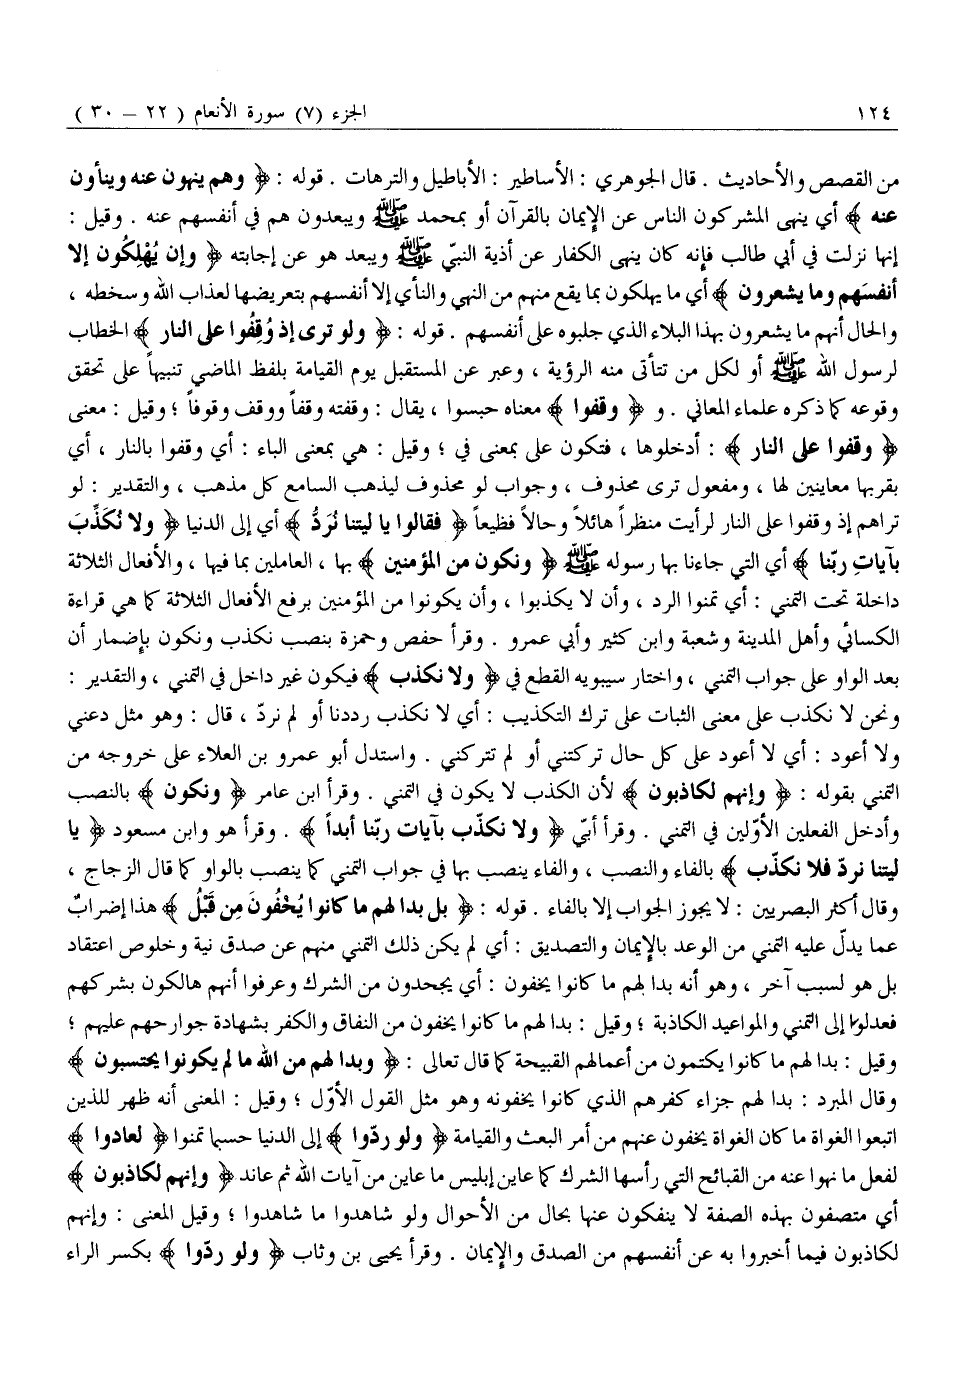 ١٢٤ الجزء (٧) سورة الأنعام ( ٢٢ – ٣٠ )
من القصص والأحاديث . قال الجوهري : الأساطير : الأباطيل والترهات . قوله : ﴿ وهم ينهون عنه وينأون
عنه ﴾ أي ينهى المشركون الناس عن الإيمان بالقرآن أو بمحمد ﷺ ويبعدون هم في أنفسهم عنه . وقيل :
إنها نزلت في أبي طالب فإنه كان ينهى الكفار عن أذية النبيّ ﷺ ويبعد هو عن إجابته ﴿ وإن يُهْلِكُون إلا
أنفسَهم وما يشعرون ﴾ أي ما يهلكون بما يقع منهم من النهي والنأي إلا أنفسهم بتعريضها لعذاب الله وسخطه ،
والحال أنهم ما يشعرون بهذا البلاء الذي جلبوه على أنفسهم . قوله : ﴿ ولو ترى إذ وُقِفُوا على النار ﴾ الخطاب
لرسول الله ﷺ أو لكل من تتأتى منه الرؤية ، وعبر عن المستقبل يوم القيامة بلفظ الماضي تنبيهاً على تحقق
وقوعه كما ذكره علماء المعاني . و ﴿ وقفوا ﴾ معناه حبسوا ، يقال : وقفته وقفاً ووقف وقوفاً ؛ وقيل : معنى
﴿ وقفوا على النار ﴾ : أدخلوها ، فتكون على بمعنى في ؛ وقيل : هي بمعنى الباء : أي وقفوا بالنار ، أي
بقربها معاينين لها ، ومفعول ترى محذوف ، وجواب لو محذوف ليذهب السامع كل مذهب ، والتقدير : لو
تراهم إذ وقفوا على النار لرأيت منظراً هائلاً وحالاً فظيعاً ﴿ فقالوا يا ليتنا نُرَدُّ ﴾ أي إلى الدنيا ﴿ ولا نُكَذِّبَ
بآياتِ ربّنا ﴾ أي التي جاءنا بها رسوله ﷺ ﴿ ونكون من المؤمنين ﴾ بها ، العاملين بما فيها ، والأفعال الثلاثة
داخلة تحت التمني : أي تمنوا الرد ، وأن لا يكذبوا ، وأن يكونوا من المؤمنين برفع الأفعال الثلاثة كما هي قراءة
الكسائي وأهل المدينة وشعبة وابن كثير وأبي عمرو . وقرأ حفص وحمزة بنصب نكذب ونكون بإضمار أن
بعد الواو على جواب التمني ، واختار سيبويه القطع في ﴿ ولا نكذب ﴾ فيكون غير داخل في التمني ، والتقدير :
ونحن لا نكذب على معنى الثبات على ترك التكذيب : أي لا نكذب رددنا أو لم نردّ ، قال : وهو مثل دعني
ولا أعود : أي لا أعود على كل حال تركتني أو لم تتركني . واستدل أبو عمرو بن العلاء على خروجه من
التمني بقوله : ﴿ وإنهم لكاذبون ﴾ لأن الكذب لا يكون في التمني . وقرأ ابن عامر ﴿ ونكون ﴾ بالنصب
وأدخل الفعلين الأوّلين في التمني . وقرأ أبيّ ﴿ ولا نكذّب بآيات ربّنا أبداً ﴾ . وقرأ هو وابن مسعود ﴿ يا
ليتنا نردّ فلا نكذّب ﴾ بالفاء والنصب ، والفاء ينصب بها في جواب التمني كما ينصب بالواو كما قال الزجاج ،
وقال أكثر البصريين : لا يجوز الجواب إلا بالفاء . قوله : ﴿ بل بدا لهم ما كانوا يُخْفُونَ مِن قَبْلُ ﴾ هذا إضرابٌ
عما يدلّ عليه التمني من الوعد بالإيمان والتصديق : أي لم يكن ذلك التمني منهم عن صدق نية وخلوص اعتقاد
بل هو لسبب آخر ، وهو أنه بدا لهم ما كانوا يخفون : أي يجحدون من الشرك وعرفوا أنهم هالكون بشركهم
فعدلوا إلى التمني والمواعيد الكاذبة ؛ وقيل : بدا لهم ما كانوا يخفون من النفاق والكفر بشهادة جوارحهم عليهم ؛
وقيل : بدا لهم ما كانوا يكتمون من أعمالهم القبيحة كما قال تعالى : ﴿ وبدا لهم من الله ما لم يكونوا يحتسبون ﴾
وقال المبرد : بدا لهم جزاء كفرهم الذي كانوا يخفونه وهو مثل القول الأوّل ؛ وقيل : المعنى أنه ظهر للذين
اتبعوا الغواة ما كان الغواة يخفون عنهم من أمر البعث والقيامة ﴿ ولو ردّوا ﴾ إلى الدنيا حسبما تمنوا ﴿ لعادوا ﴾
لفعل ما نهوا عنه من القبائح التي رأسها الشرك كما عاين إبليس ما عاين من آيات الله ثم عاند ﴿ وإنهم لكاذبون ﴾
أي متصفون بهذه الصفة لا ينفكون عنها بحال من الأحوال ولو شاهدوا ما شاهدوا ؛ وقيل المعنى : وإنهم
لكاذبون فيما أخبروا به عن أنفسهم من الصدق والإيمان . وقرأ يحيى بن وثاب ﴿ ولو ردّوا ﴾ بكسر الراء